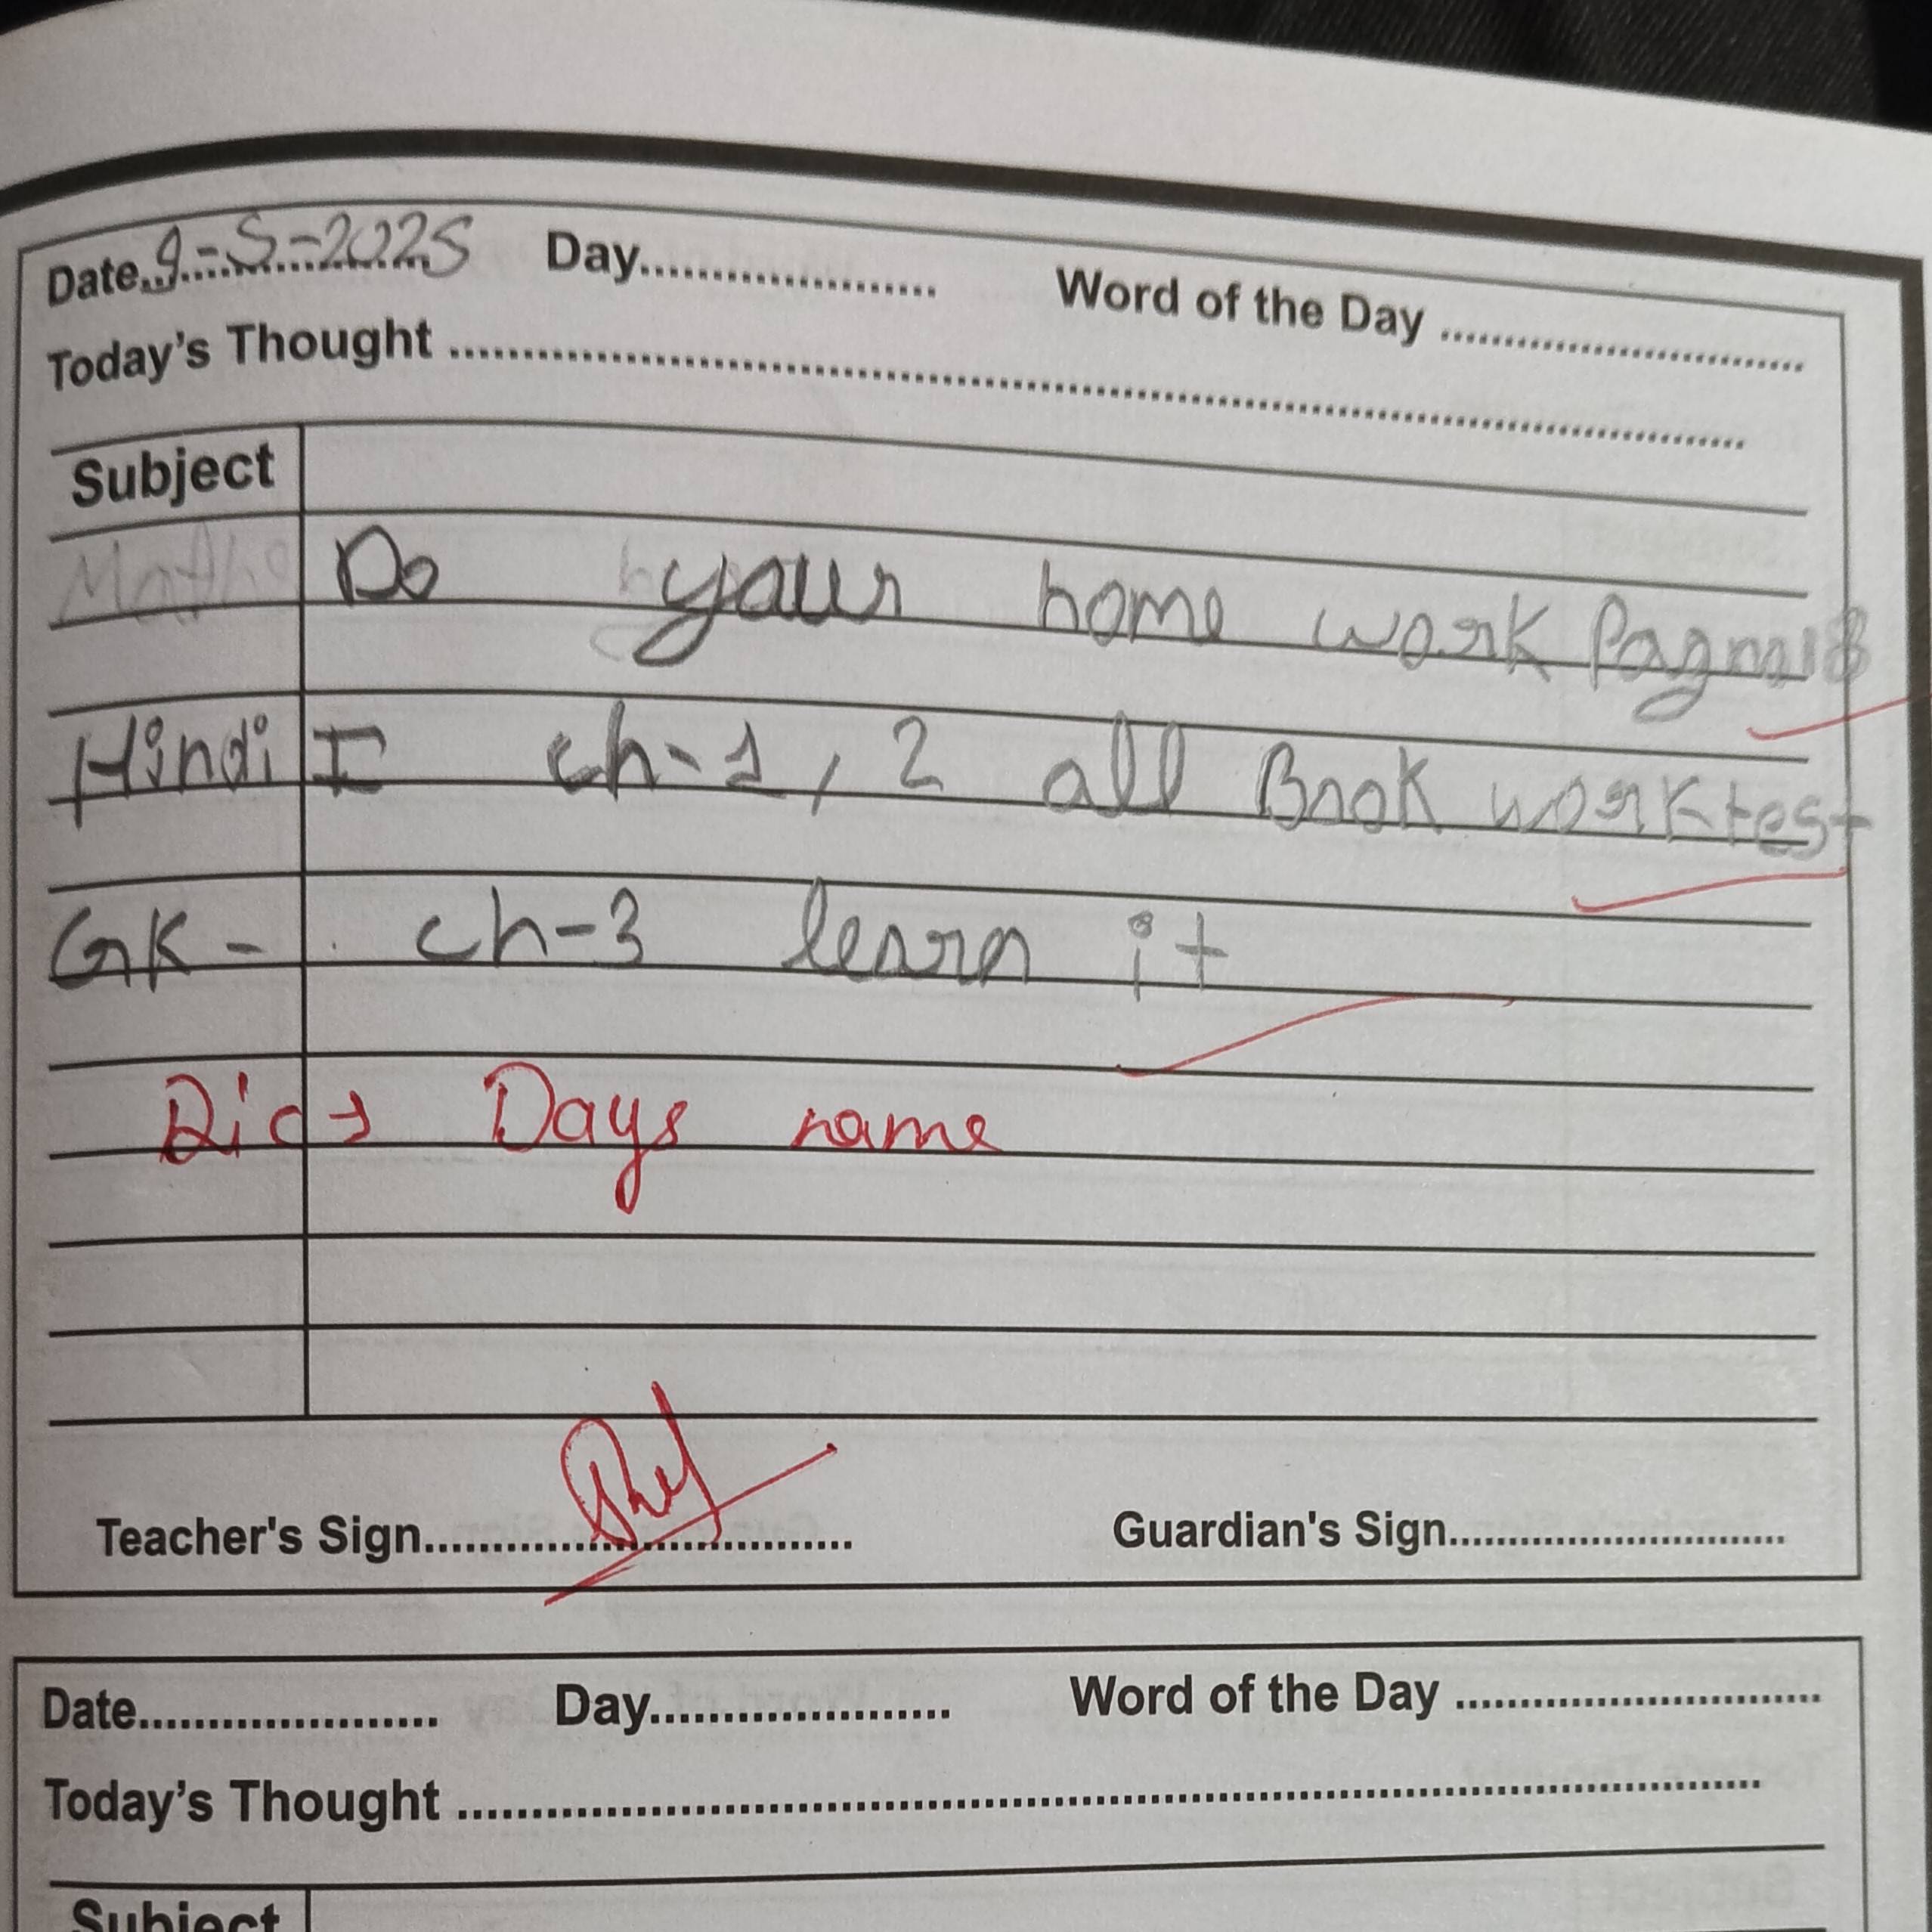 Date 9-5-2025 Day.................... Word of the Day ............................
Today's Thought ............................................................
Subject
Maths Do your home work
Hindi I ch-1, 2 all Book work test
GK - ch-3 learn it
Dic → Days name
Teacher's Sign.............................. Guardian's Sign............................
Date...................... Day...................... Word of the Day ............................
Today's Thought ............................................................
Subject